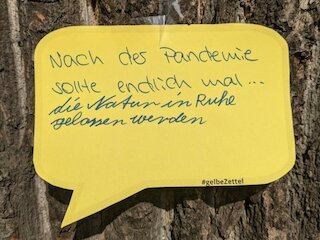 Nach der Pandemie
sollte endlich mal...
die Natur in Ruhe
gelassen werden
#gelbeZettel